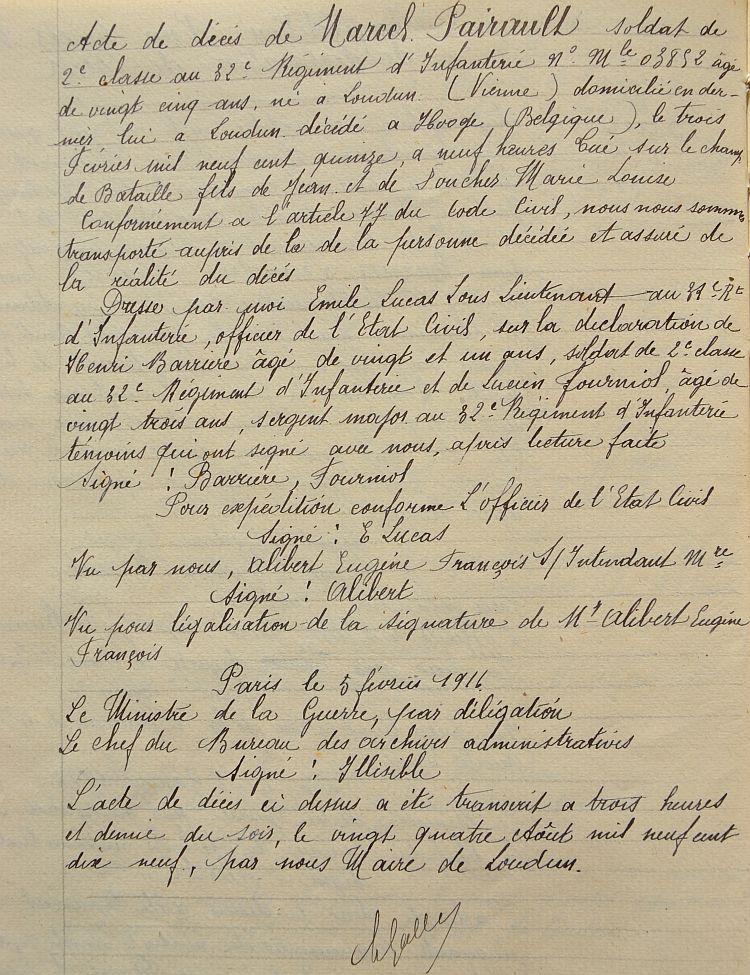 Acte de décès de Marcel Pairault soldat de
2e classe au 32e Régiment d'Infanterie No Mle 03852 âgé
de vingt cinq ans, né à Loudun (Vienne) domicilié en der-
nier lui a Loudun décédé a Hooge (Belgique), le trois
Février mil neuf cent quinze, a neuf heures Tué sur le champ
de Bataille fils de Jean et de Souchet Marie Louise
Conformément a l'article 77 du Code Civil, nous nous somme
transporté auprès de la de la personne décédée et assuré de
la réalité du décés
Dresse par moi Emile Lucas Sous Lieutenant au 32e Rt
d'Infanterie, officier de l'Etat Civil, sur la declaration de
Henri Barrière âgé de vingt et un ans, soldat de 2e classe
au 32e Régiment d'Infanterie et de Lucien Fourniol, âgé de
vingt trois ans, sergent major au 32e Régiment d'Infanterie
témoins qui ont signé avec nous, après lecture faite
Signé : Barrière, Fourniol
Pour expédition conforme L'officier de l'Etat Civil
Signé : E Lucas
Vu par nous, Alibert Eugéne François S/Intendant Mre
Signé : Alibert
Vu pour légalisation de la signature de Mr Alibert Eugéne
François
Paris le 5 février 1916
Le Ministre de la Guerre, par délégation
Le chef du Bureau des archives administratives
Signé : Illisible
L'acte de décès ci dessus a été transcrit a trois heures
et demie du soir, le vingt quatre Août mil neuf cent
dix neuf, par nous Maire de Loudun.